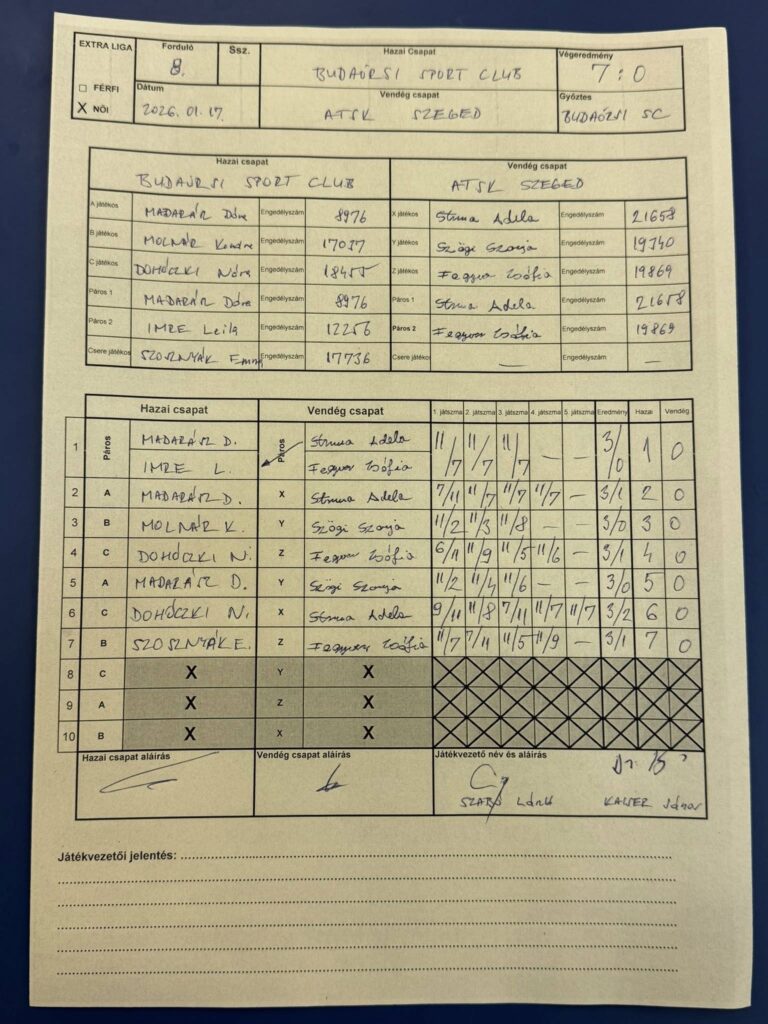 EXTRA LIGA Forduló Ssz. Hazai Csapat Végeredmény
8. BUDAÖRSI SPORT CLUB 7:0
□ FÉRFI Dátum Vendég csapat Győztes
X NŐI 2026. 01. 17. ATSK SZEGED BUDAÖRSI SC
Hazai csapat Vendég csapat
BUDAÖRSI SPORT CLUB ATSK SZEGED
A játékos MADARÁSZ Dóra Engedélyszám 8976 X játékos Struna Adela Engedélyszám 21658
B játékos MOLNÁR Kendra Engedélyszám 17027 Y játékos Szögi Szonja Engedélyszám 19740
C játékos DOHÓCZKI Nóra Engedélyszám 18455 Z játékos Zsófia Engedélyszám 19869
Páros 1 MADARÁSZ Dóra Engedélyszám 8976 Páros 1 Struna Adela Engedélyszám 21658
Páros 2 IMRE Leila Engedélyszám 12256 Páros 2 Zsófia Engedélyszám 19869
Csere játékos SZOSZNYÁK Emma Engedélyszám 17736 Csere játékos — Engedélyszám —
Hazai csapat Vendég csapat 1. játszma 2. játszma 3. játszma 4. játszma 5. játszma Eredmény Hazai Vendég
1 Páros MADARÁSZ D. Páros Struna Adela 11/7 11/7 11/7 — — 3/0 1 0
IMRE L. Zsófia
2 A MADARÁSZ D. X Struna Adela 7/11 11/7 11/7 11/7 — 3/1 2 0
3 B MOLNÁR K. Y Szögi Szonja 11/2 11/3 11/8 — — 3/0 3 0
4 C DOHÓCZKI N. Z Zsófia 6/11 11/9 11/5 11/6 — 3/1 4 0
5 A MADARÁSZ D. Y Szögi Szonja 11/2 11/4 11/6 — — 3/0 5 0
6 C DOHÓCZKI N. X Struna Adela 9/11 11/8 7/11 11/7 11/7 3/2 6 0
7 B SZOSZNYÁK E. Z Zsófia 11/7 7/11 11/5 11/9 — 3/1 7 0
8 C X Y X
9 A X Z X
10 B X X X
Hazai csapat aláírás Vendég csapat aláírás Játékvezető név és aláírás
SZABÓ
Játékvezetői jelentés: